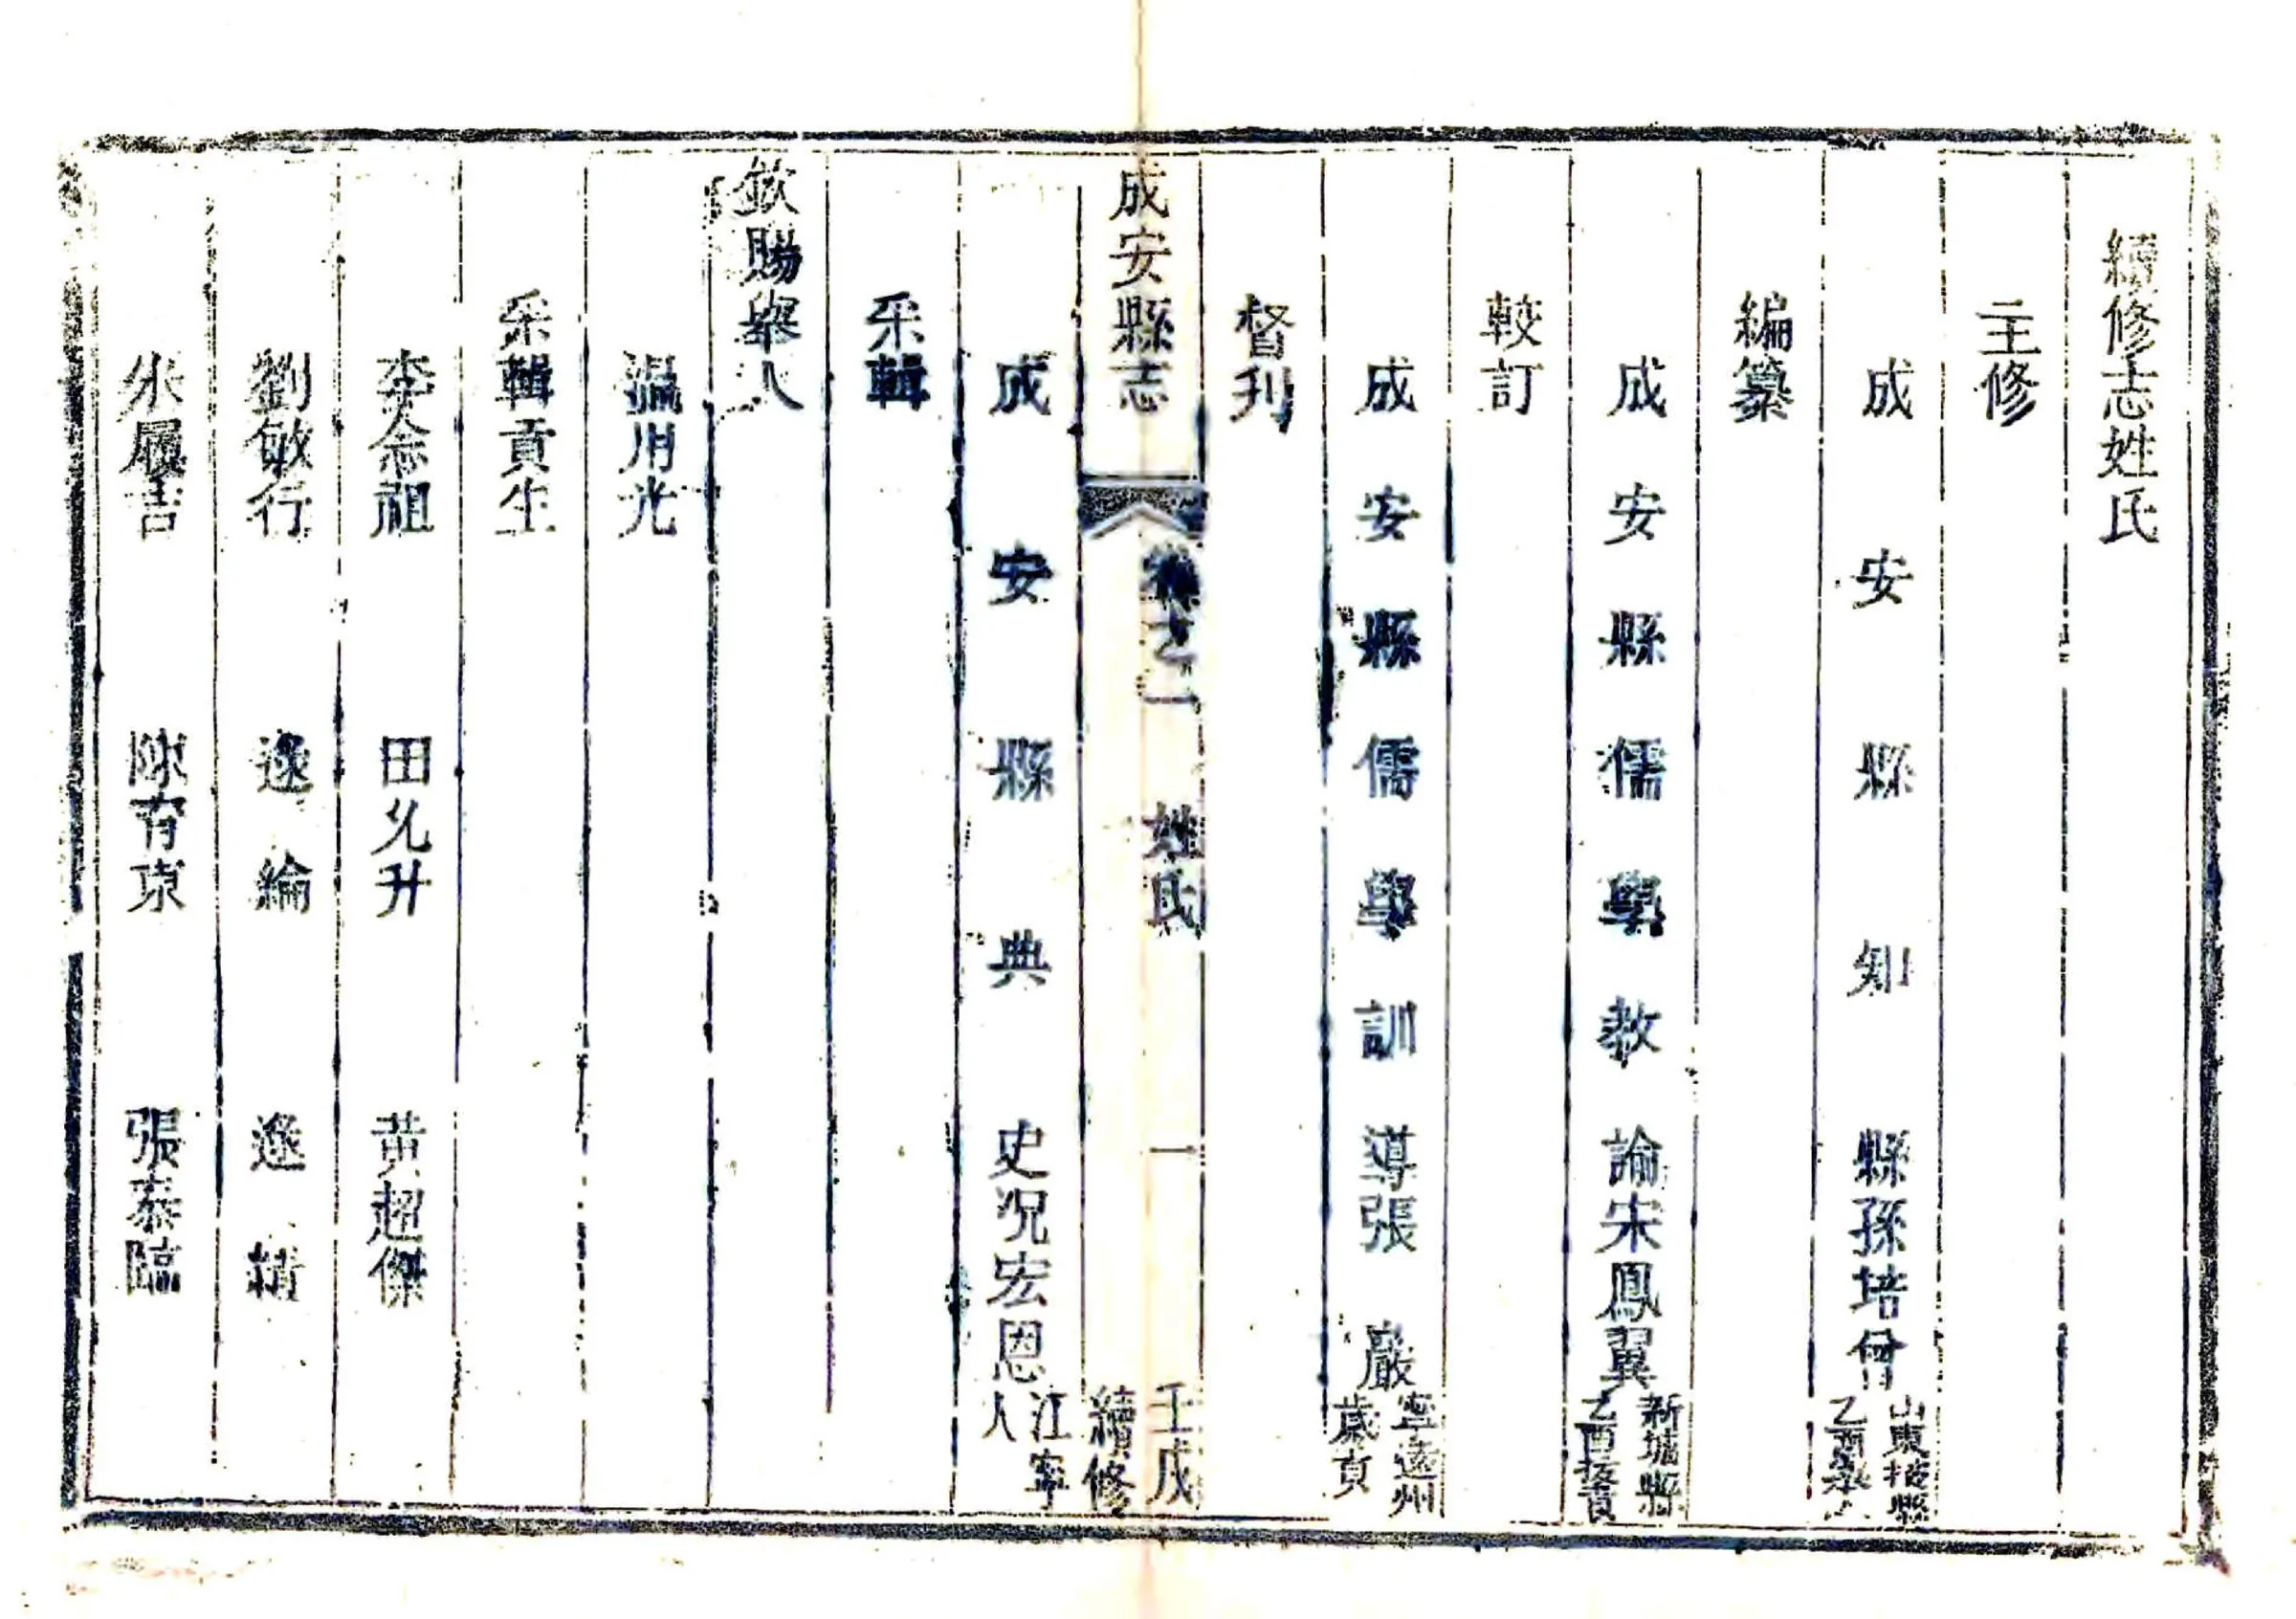 續修志姓氏
主修
成安縣知縣孫培曾山東掖縣乙酉舉人
編纂
成安縣儒學教諭宋鳳翼新城縣乙酉拔貢
較訂
成安縣儒學訓導張巖寧遠州歲貢
督刊
成安縣志 卷之一 姓氏 一 壬戌續修
成安縣典史況宏恩江寧人
采輯
欽賜舉人
溫用光
采輯貢生
李念祖 田允升 黃超傑
劉敏行 逯綸 逯精
朱履吉 陳育東 張泰臨